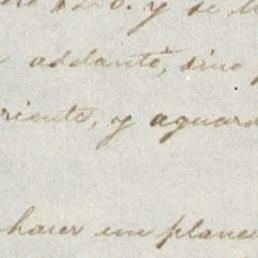 y se
adelante, sino
riente, y aguard
hacer un plano